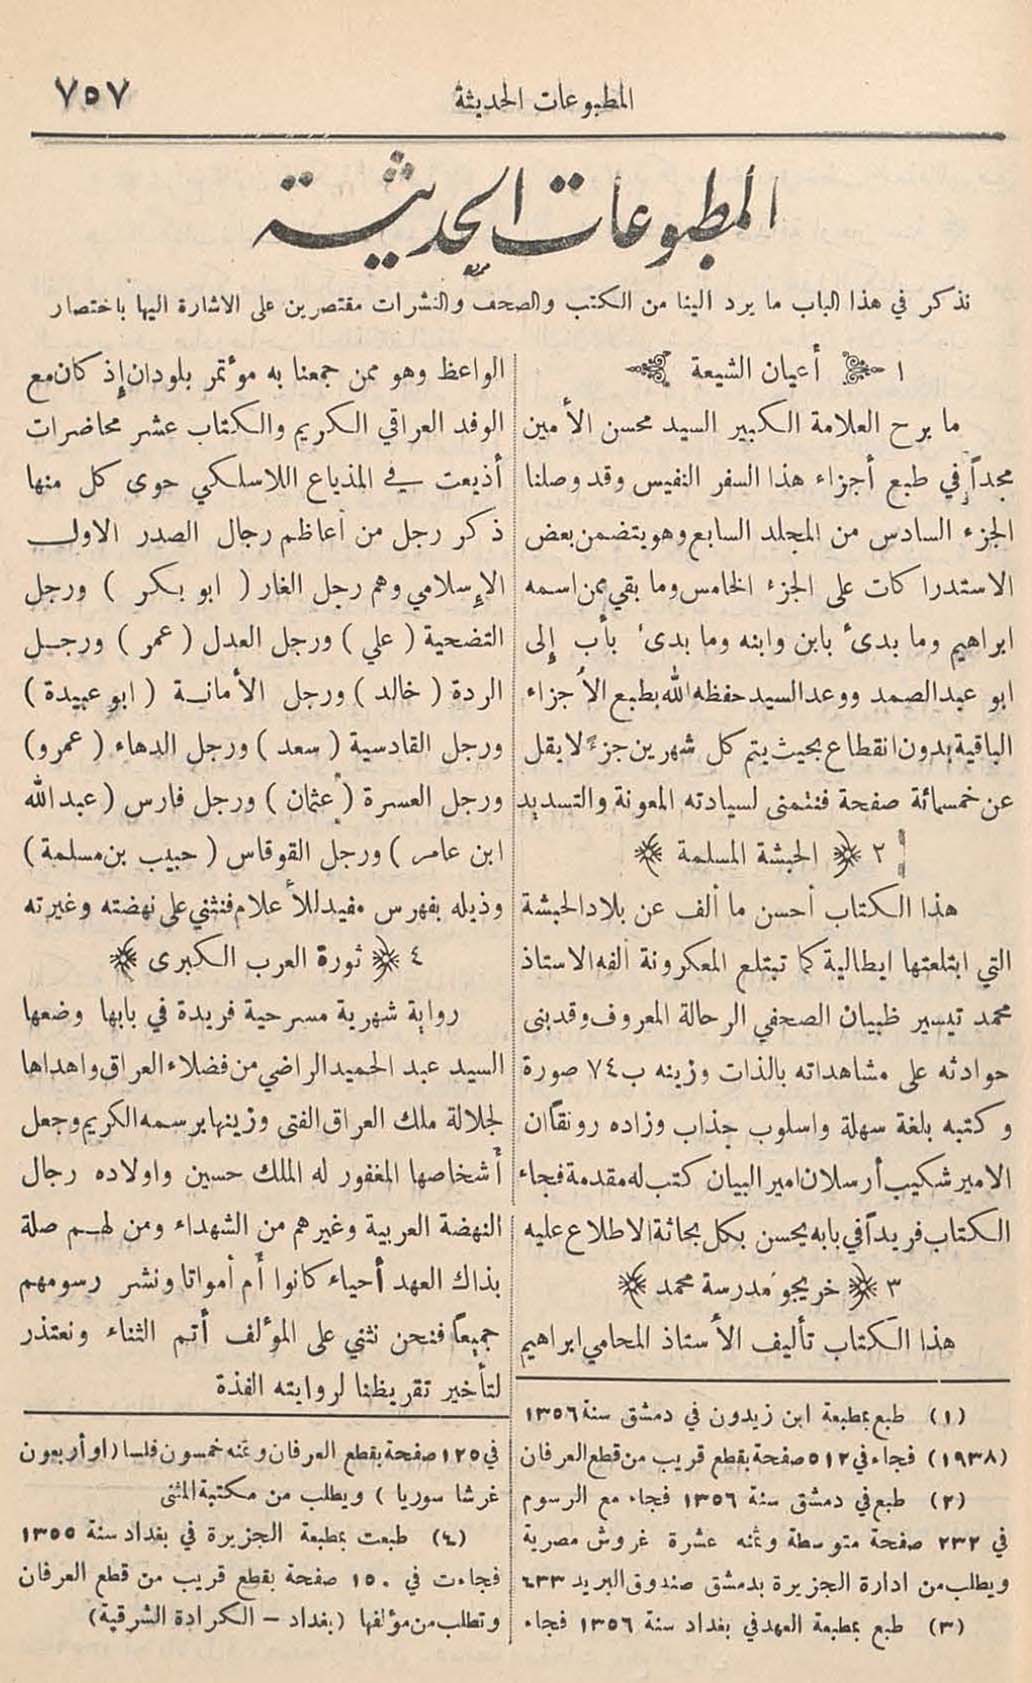 المطبوعات الحديثة
٧٥٧
المطبوعات الحديثة
نذكر في هذا الباب ما يرد الينا من الكتب والصحف والنشرات مقتصرين على الاشارة اليها باختصار
١ أعيان الشيعة
ما برح العلامة الكبير السيد محسن الأمين
مجداً في طبع أجزاء هذا السفر النفيس وقد وصلنا
الجزء السادس من المجلد السابع وهو يتضمن بعض
الاستدراكات على الجزء الخامس وما بقي ممن اسمه
ابراهيم وما بدئ بابن وابنه وما بدئ بأب إلى
ابو عبدالصمد ووعد السيد حفظه الله بطبع الأجزاء
الباقية بدون انقطاع بحيث يتم كل شهرين جزء لا يقل
عن خمسمائة صفحة فنتمنى لسيادته المعونة والتسديد
٢ الحبشة المسلمة
هذا الكتاب أحسن ما ألف عن بلاد الحبشة
التي ابتلعتها ايطالية كما تبتلع المعكرونة ألفه الاستاذ
محمد تيسير ظبيان الصحفي الرحالة المعروف وقد بنى
حوادثه على مشاهداته بالذات وزينه ب٧٤ صورة
وكتبه بلغة سهلة واسلوب جذاب وزاده رونقاً ان
الامير شكيب أرسلان امير البيان كتب له مقدمة فجاء
الكتاب فريداً في بابه يحسن بكل بحاثة الاطلاع عليه
٣ خريجو مدرسة محمد
هذا الكتاب تأليف الأستاذ المحامي ابراهيم
(١) طبع بمطبعة ابن زيدون في دمشق سنة ١٣٥٦
(١٩٣٨) فجاء في ٥١٢ صفحة بقطع قريب من قطع العرفان
(٢) طبع في دمشق سنة ١٣٥٦ فجاء مع الرسوم
في ٢٣٢ صفحة متوسطة وثمنه عشرة غروش مصرية
ويطلب من ادارة الجزيرة بدمشق صندوق البريد ٦٣٣
(٣) طبع بمطبعة العهد في بغداد سنة ١٣٥٦ فجاء
الواعظ وهو ممن جمعنا به مؤتمر بلودان إذ كان مع
الوفد العراقي الكريم والكتاب عشر محاضرات
أذيعت في المذياع اللاسلكي حوى كل منها
ذكر رجل من أعاظم رجال الصدر الاول
الإسلامي وهم رجل الغار ( ابو بكر ) ورجل
التضحية ( علي ) ورجل العدل ( عمر ) ورجل
الردة ( خالد ) ورجل الأمانة ( ابو عبيدة )
ورجل القادسية ( سعد ) ورجل الدهاء ( عمرو )
ورجل العسرة ( عثمان ) ورجل فارس ( عبد الله
ابن عامر ) ورجل القوقاس ( حبيب بن مسلمة )
وذيله بفهرس مفيد للأعلام فنثني على نهضته وغيرته
٤ ثورة العرب الكبرى
رواية شهرية مسرحية فريدة في بابها وضعها
السيد عبد الحميد الراضي من فضلاء العراق واهداها
لجلالة ملك العراق الفتى وزينها برسمه الكريم وجعل
أشخاصها المغفور له الملك حسين واولاده رجال
النهضة العربية وغيرهم من الشهداء ومن لهم صلة
بذاك العهد أحياء كانوا أم أمواتا ونشر رسومهم
جميعاً فنحن نثني على المؤلف أتم الثناء ونعتذر
لتأخير تقريظنا لروايته الفذة
في ١٢٥ صفحة بقطع العرفان وثمنه خمسون فلسا (او أربعون
غرشا سوريا ) ويطلب من مكتبة المثنى
(٤) طبعت بمطبعة الجزيرة في بغداد سنة ١٣٥٥
فجاءت في ١٥٠ صفحة بقطع قريب من قطع العرفان
وتطلب من مؤلفها (بغداد - الكرادة الشرقية)